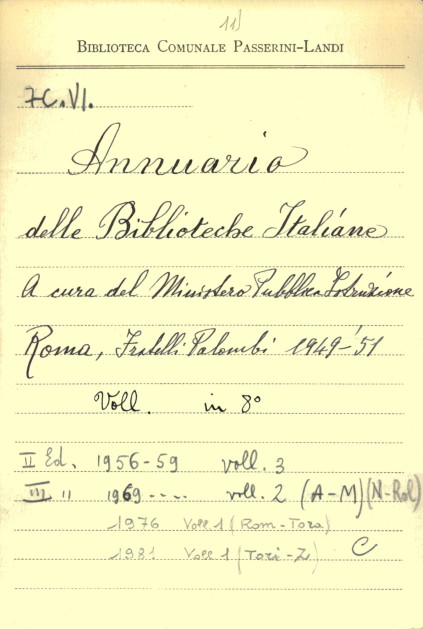 11)
BIBLIOTECA COMUNALE PASSERINI-LANDI
7C.VI.
Annuario
delle Biblioteche Italiane
A cura del Ministero Pubblica Istruzione
Roma, Fratelli Palombi 1949-'51
Voll. in 8°
II Ed. 1956-59 voll. 3
III " 1969---- voll. 2 (A-M) (N-Rol)
1976 Voll 1 (Rom-Tora)
1981 Voll 1 (Tori-Z) C